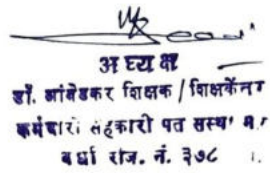 अध्यक्ष
डॉ. आंबेडकर शिक्षक / शिक्षकेत्तर
कर्मचारी सहकारी पत संस्था म.
वर्धा रजि. नं. ३७८